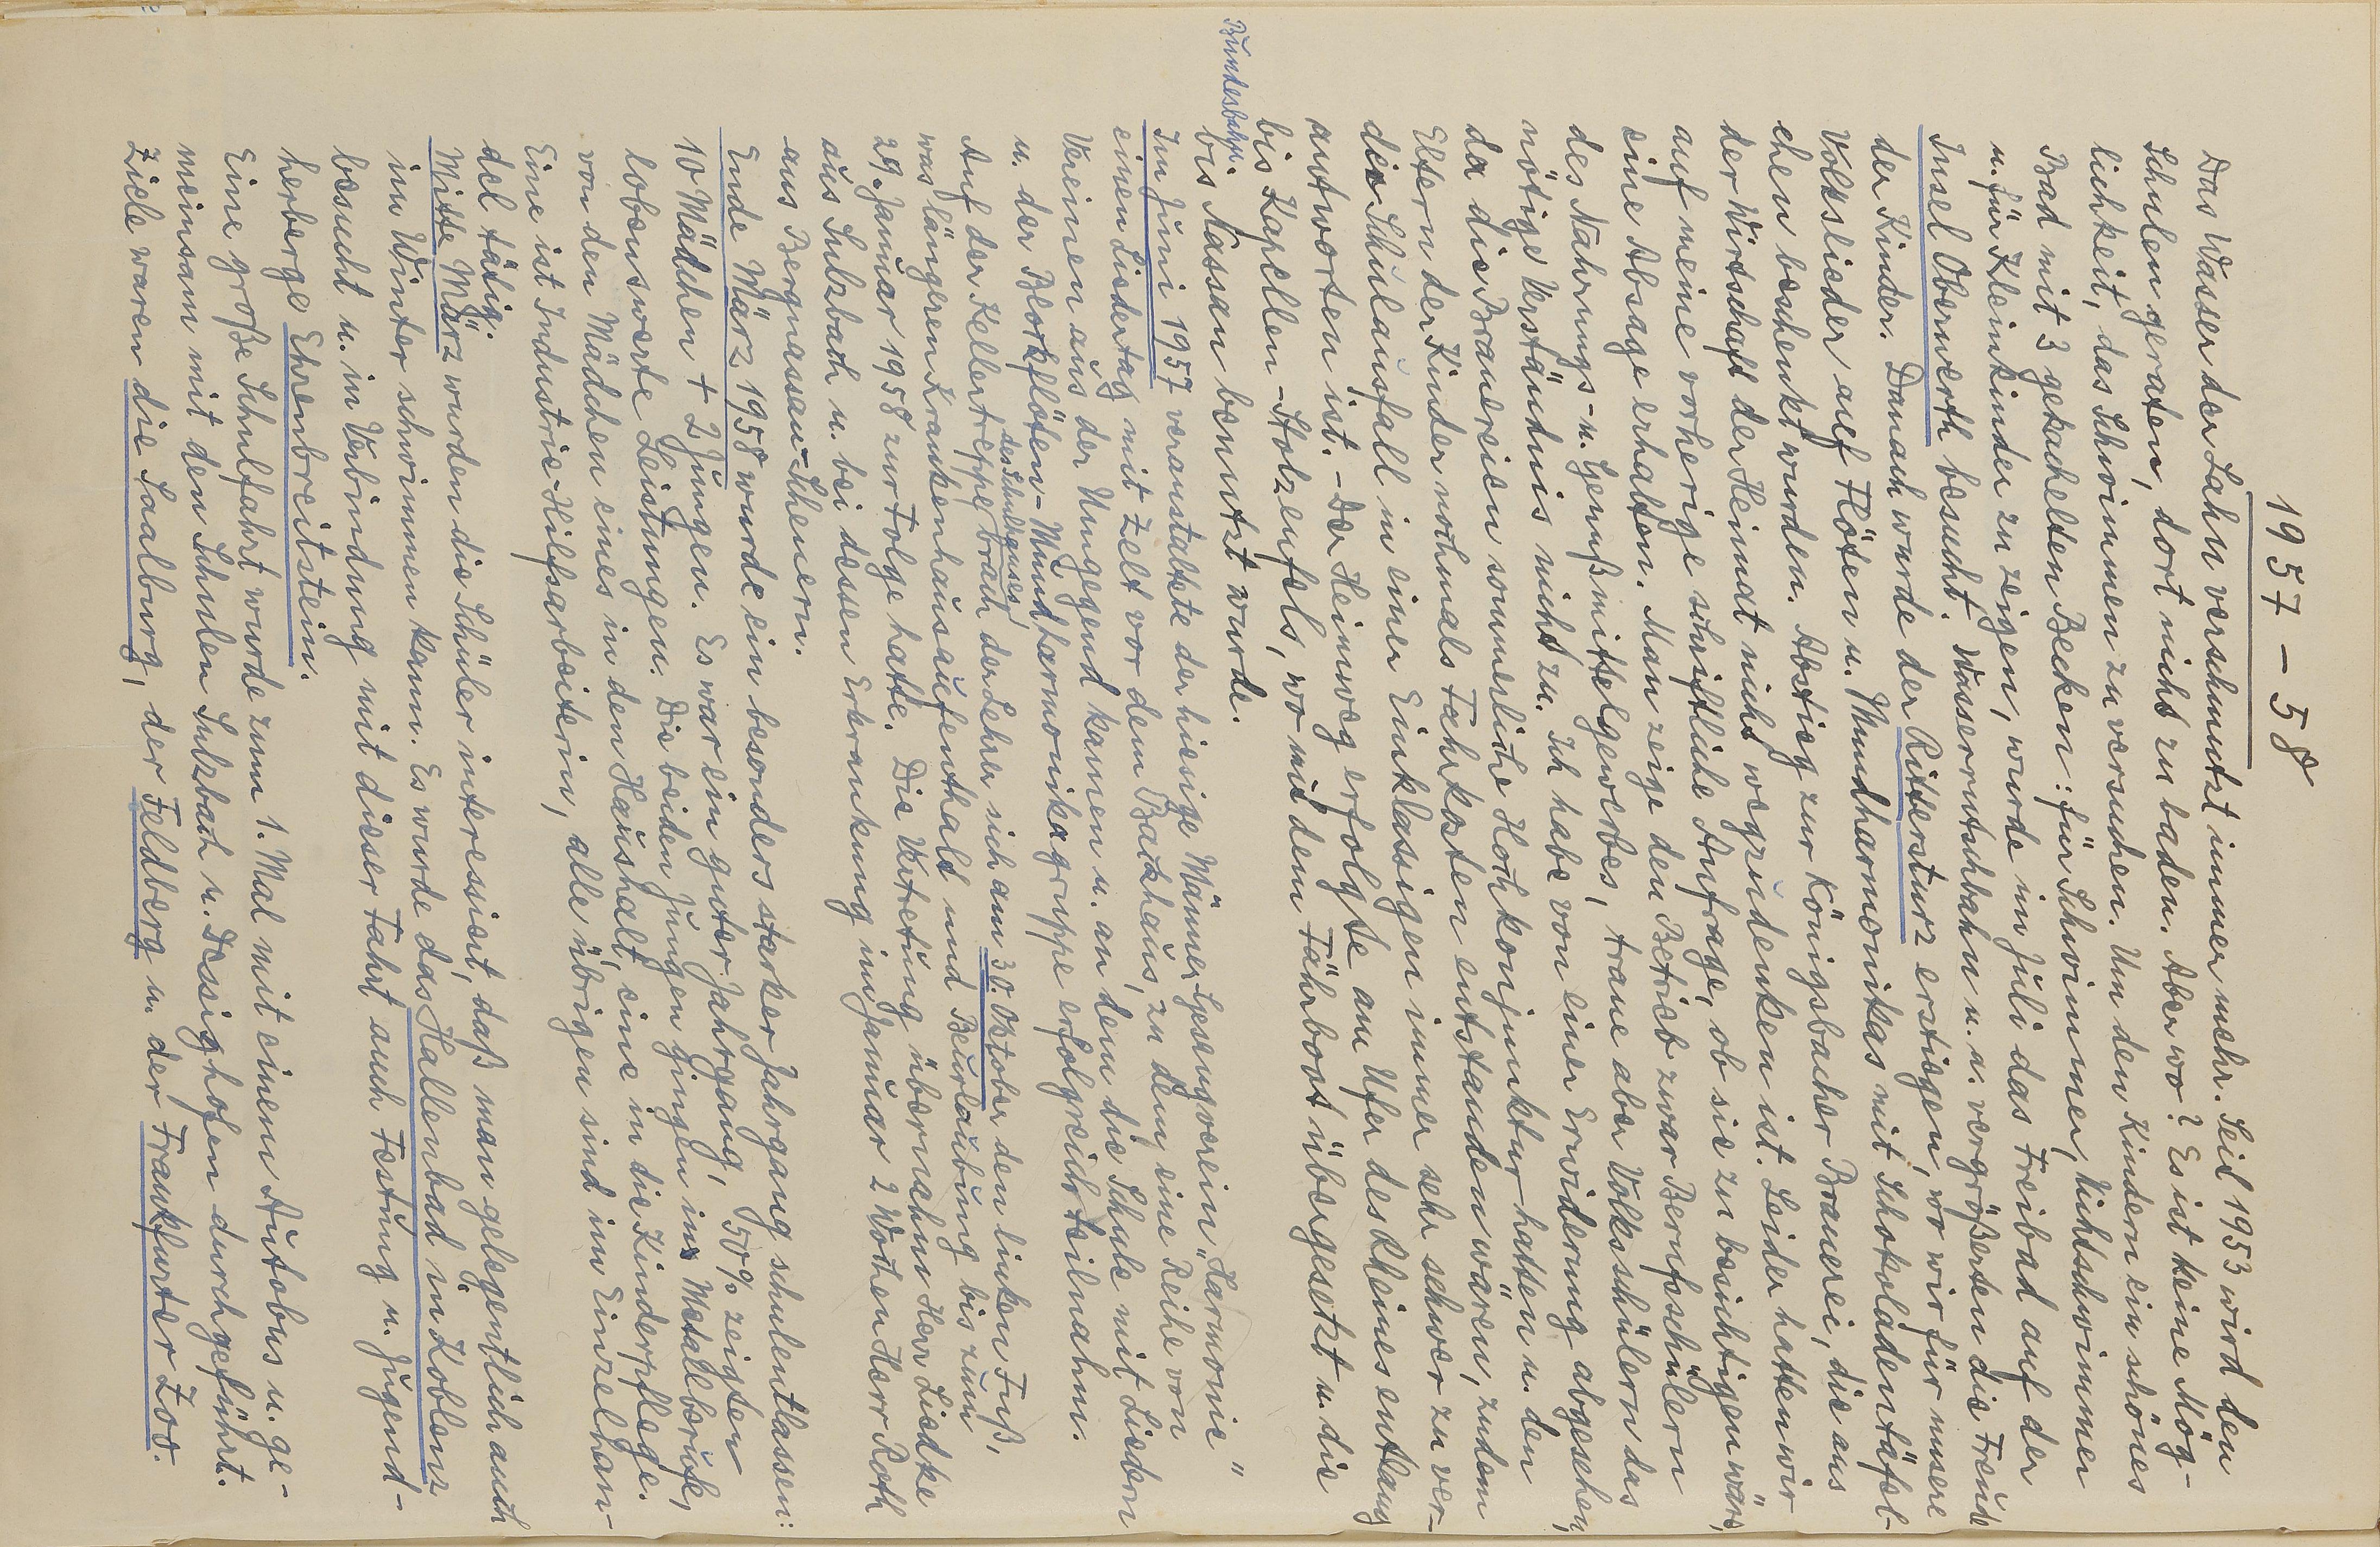 1957 - 58
Das Wasser der Lahn verschmutzt immer mehr. Seit 1953 wird den
Schulen geraten, dort nicht zu baden. Aber wo? Es ist keine Mög-
lichkeit, das Schwimmen zu versuchen. Um den Kindern ein schönes
Bad mit 3 gekachelten Becken: für Schwimmer, Nichtschwimmer
u. für Kleinkinder zu zeigen, wurde im Juli das Freibad auf der
Insel Oberwerth besucht. Wasserrutschbahn u. a. vergrößerten die Freude
der Kinder. Danach wurde der Rittersturz erstiegen, wo wir für unsere
Volkslieder auf Flöten u. Mundharmonikas mit Schokoladentäfel-
chen beschenkt wurden. Abstieg zur Königsbacher Brauerei, die aus
der Wirtschaft der Heimat nicht wegzudenken ist. Leider hatten wir
auf meine vorherige schriftliche Anfrage, ob sie zu besichtigen wäre,
eine Absage erhalten. Man zeige den Betrieb zwar Berufsschülern
des Nahrungs- u. Genußmittelgewerbes, traue aber Volksschülern das
nötige Verständnis nicht zu. Ich habe von einer Erwiderung abgesehen,
da die Brauereien sommerliche Hochkonjunktur hatten u. den
Eltern der Kinder nochmals Fahrkosten entstanden wären, zudem
der Schulausfall in einer Einklassigen immer sehr schwer zu ver-
antworten ist. - Der Heimweg erfolgte am Ufer des Rheines entlang
bis Kapellen-Stolzenfels, wo mit dem Fährboot übergesetzt u. die
Bundesbahn
bis Nassau benutzt wurde.
Im Juni 1957 veranstaltete der hiesige Männer-Gesangverein "Harmonie"
einen Liedertag mit Zelt vor dem Backhaus, zu dem eine Reihe von
Vereinen aus der Umgegend kamen u. an dem die Schule mit Liedern
u. der Blockflöten- Mundharmonikagruppe erfolgreich teilnahm.
Auf der Kellertreppe des Schulhauses brach der Lehrer sich am 30. Oktober den linken Fuß,
was längeren Krankenhausaufenthalt und Beurlaubung bis zum
29. Januar 1958 zur Folge hatte. Die Vertretung übernahm Herr Liedke
aus Sulzbach u. bei dessen Erkrankung im Januar 2 Wochen Herr Roth
aus Bergnassau-Scheuern.
Ende März 1958 wurde ein besonders starker Jahrgang schulentlassen:
10 Mädchen + 2 Jungen. Es war ein guter Jahrgang, 50% zeigten
lobenswerte Leistungen. Die beiden Jungen gingen ins Metallberufe,
von den Mädchen eines in den Haushalt, eine in die Kinderpflege.
Eine ist Industrie-Hilfsarbeiterin, alle übrigen sind im Einzelhan-
del tätig.
Mitte März wurden die Schüler interessiert, daß man gelegentlich auch
im Winter schwimmen kann. Es wurde das Hallenbad in Koblenz
besucht u. in Verbindung mit dieser Fahrt auch Festung u. Jugend-
herberge Ehrenbreitstein.
Eine große Schulfahrt wurde zum 1. Mal mit einem Autobus u. ge-
meinsam mit den Schulen Sulzbach u. Dessighofen durchgeführt.
Ziele waren die Saalburg, der Feldberg u. der Frankfurter Zoo.